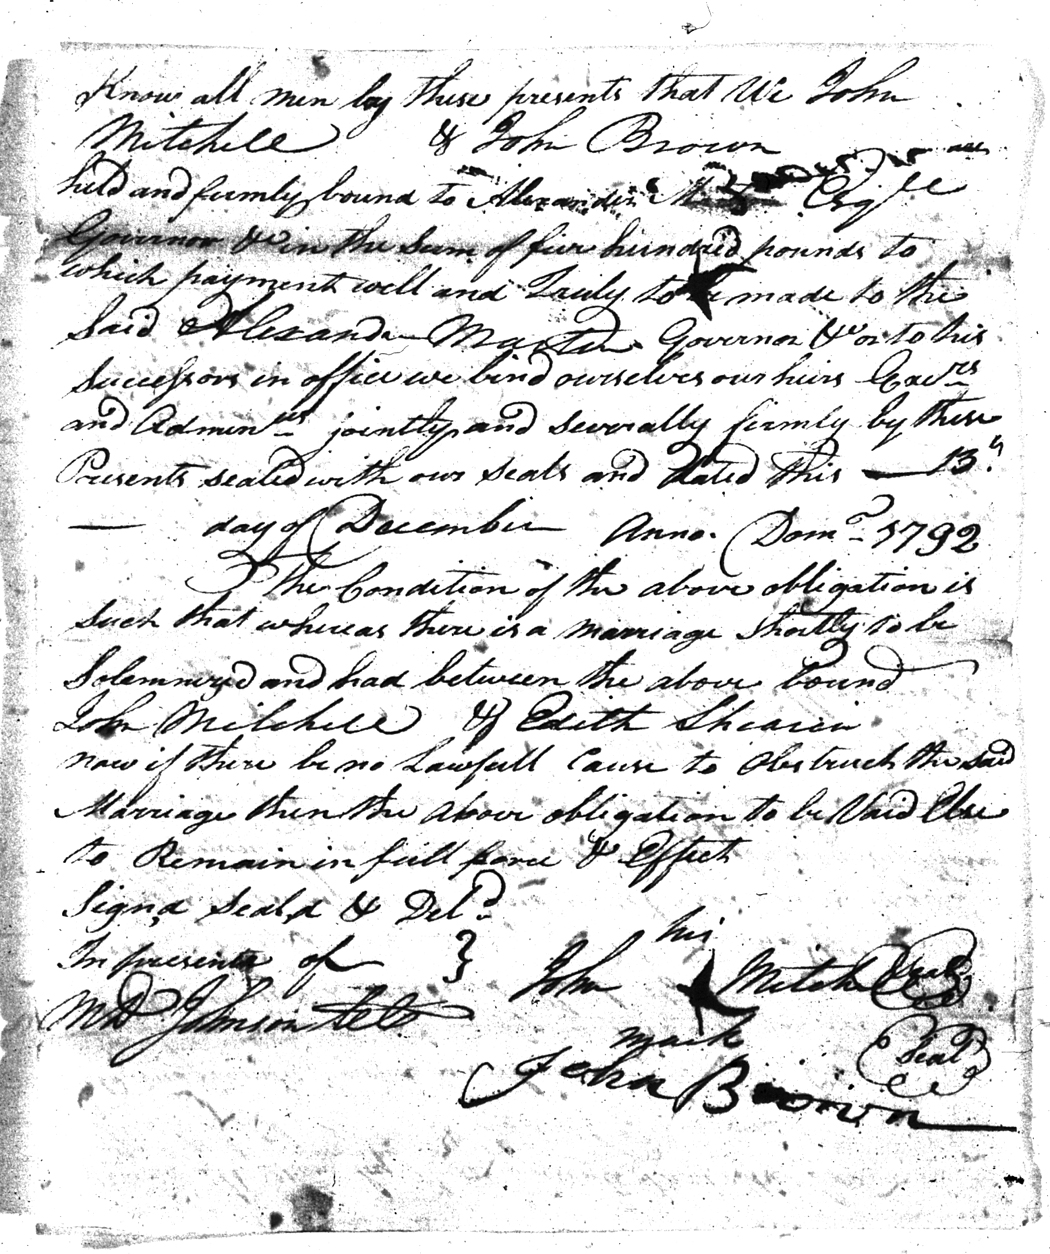 Know all men by these presents that We John
Mitchell & John Brown are
held and firmly bound to Alexander Esqre
Governor &c in the Sum of five hundred pounds to
which payment well and Truly to be made to the
Said Alexander Martin Governor &c or to his
Successors in office we bind ourselves our heirs Execrs
and Adminrs jointly and severally firmly by these
Presents sealed with our seals and dated this — 13th
— day of December Anno. Domo 1792
The Condition of the above obligation is
Such that whereas there is a marriage shortly to be
Solemnized and had between the above bound
John Mitchell & Edith Shearin
now if there be no Lawfull Cause to Obstruct the said
Marriage then the above obligation to be Void Else
to Remain in full force & Effect
Signd Seald & Deld
In presents of }
his
John Mitchell Seal
Johnson
mark
Seal
John Brown